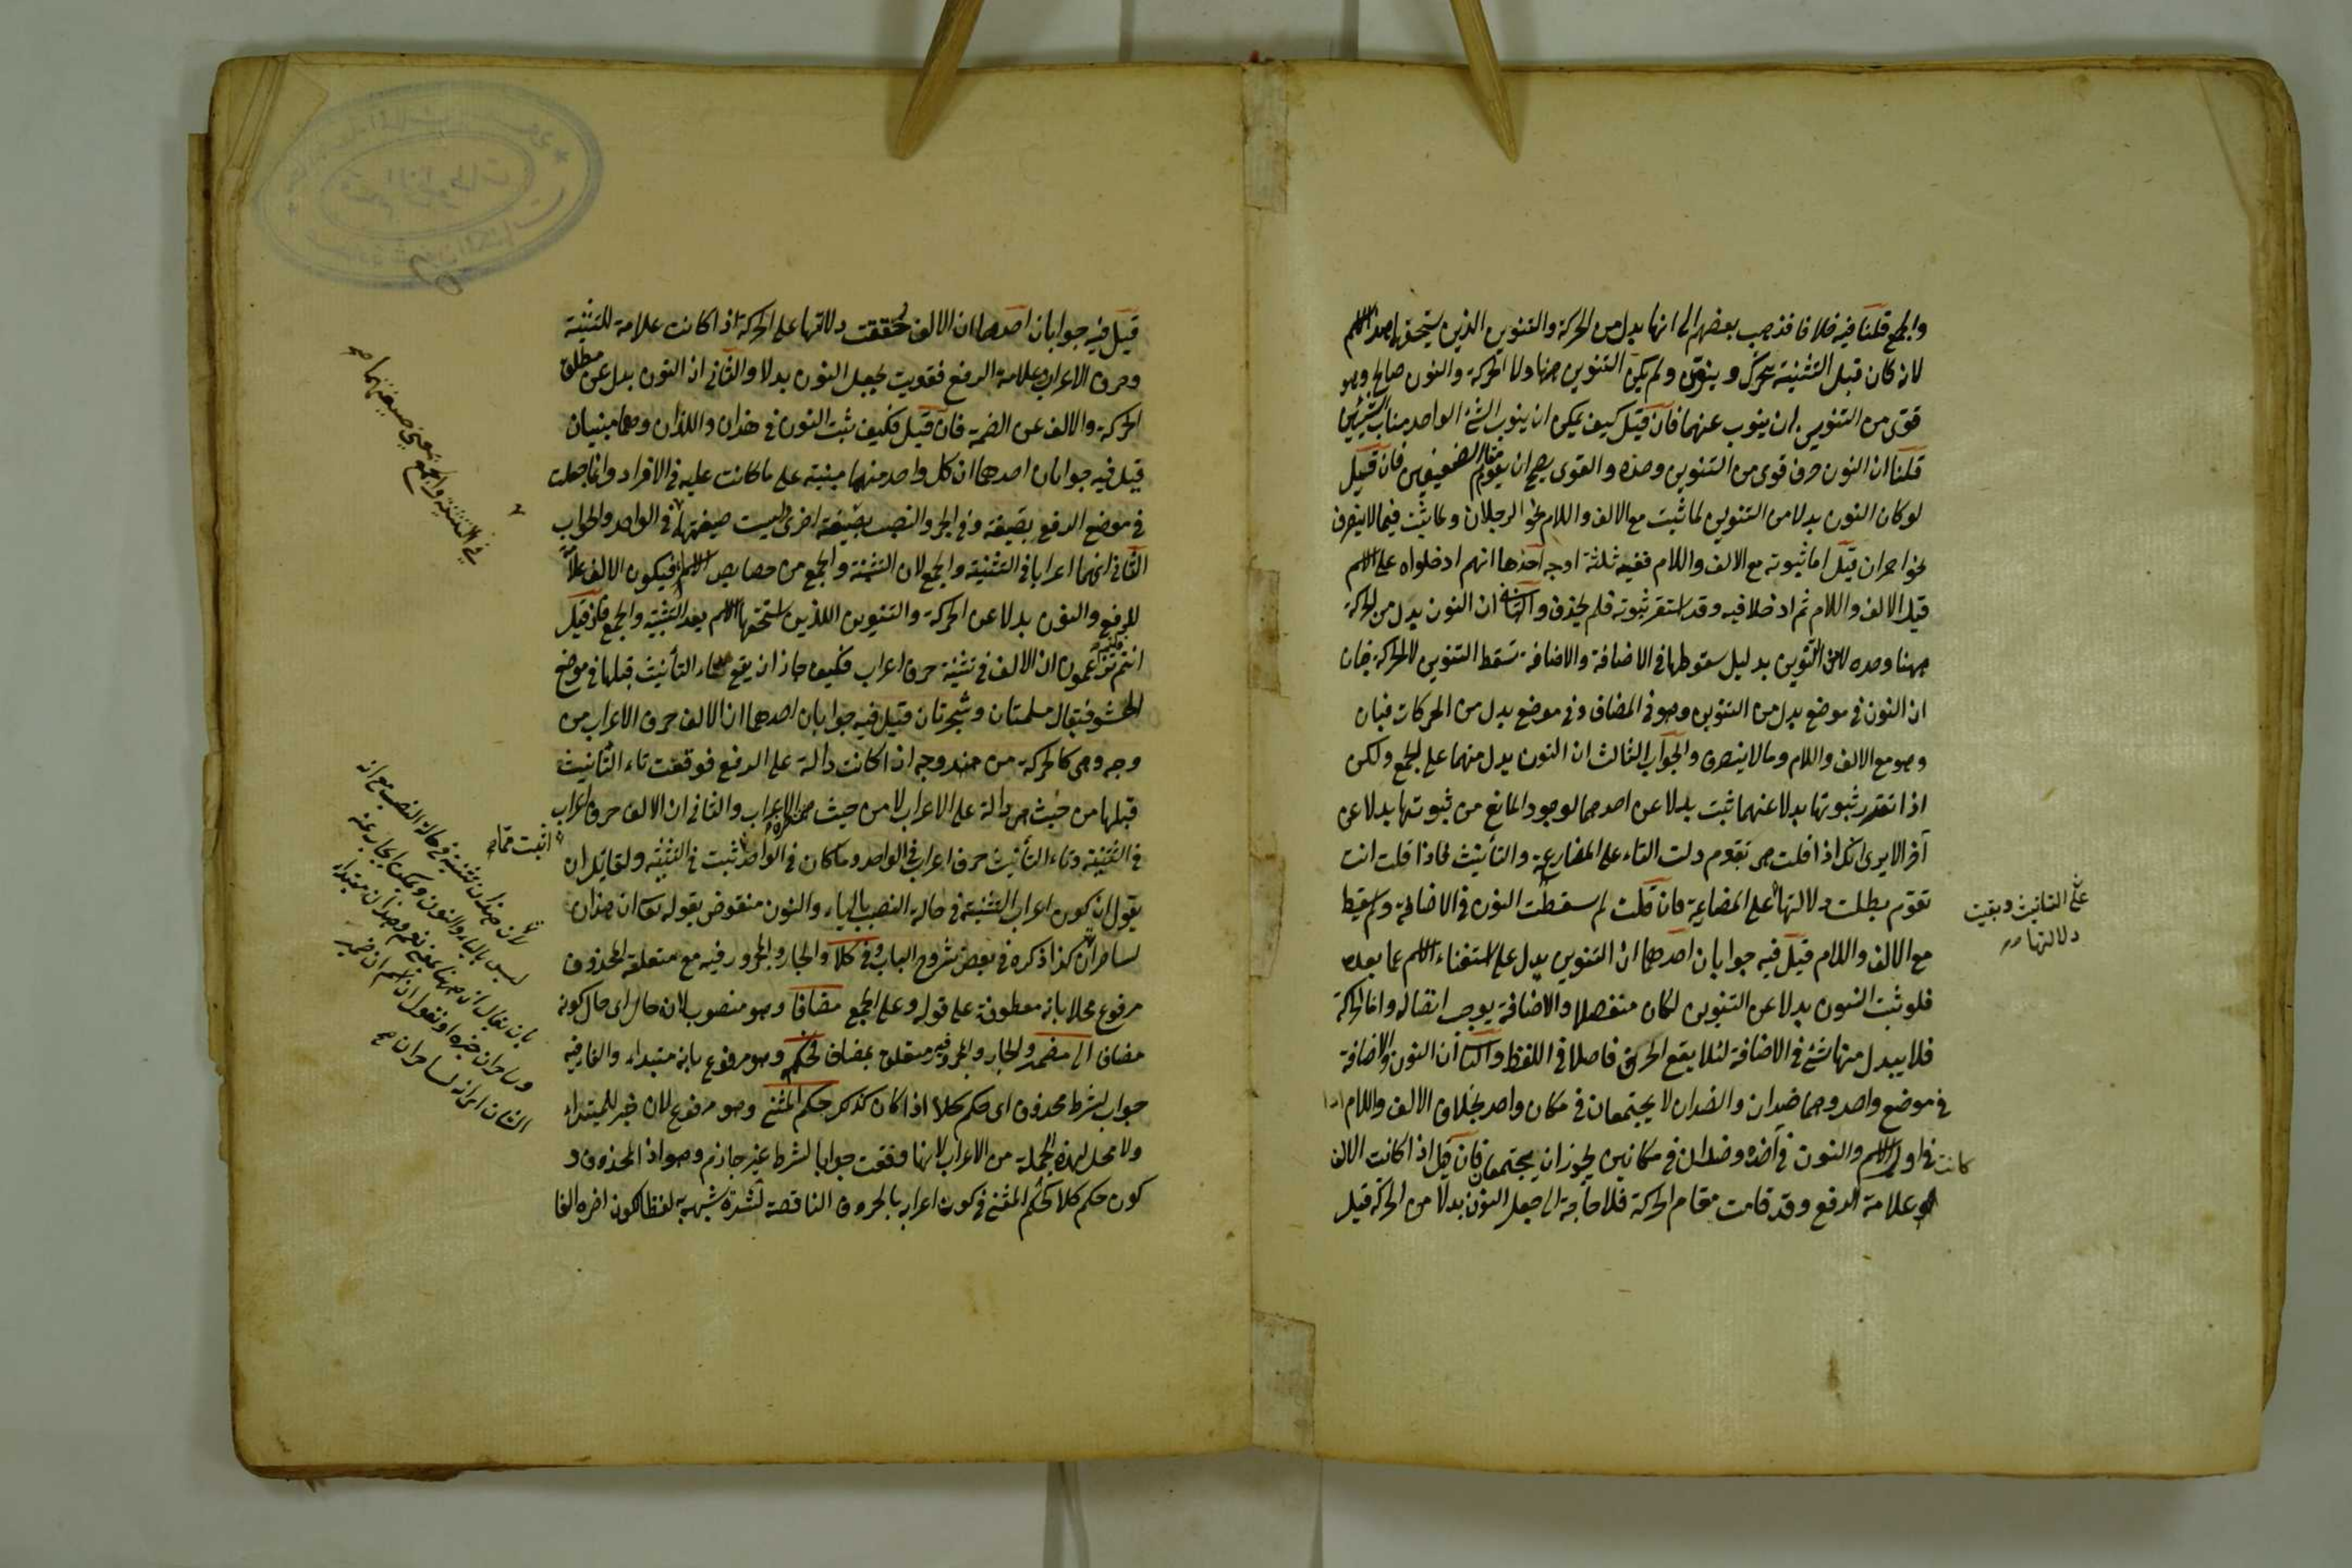 والجمع قلنا فيه خلافا فذهب بعضهم الى انها بدل من الحركة والتنوين الذين يستحقهما الاسم
لانه كان قبل التثنية يتحرك وينون ولم يكن التنوين منها ولا الحركة والنون صالح وهو
قوى من التنوين ان ينوب عنهما فان قيل كيف يمكن ان ينوب الشئ الواحد مناب الشيئين
قلنا ان النون حرف قوى من التنوين وحده والقوى يصح ان يقوم مقام الضعيفين فان قيل
لو كان النون بدلا من التنوين لما ثبت مع الالف واللام نحو الرجلان ولما يثبت فيما لا ينصرف
نحو احمران قيل اما ثبوته مع الالف واللام ففيه ثلثة اوجه احدها انهم ادخلواه على الاسم
قبل الالف واللام ثم ادخلا فيه وقد استقر ثبوته فلم يحذف والثانى ان النون بدل من الحركة
ههنا وحده لا من التنوين بدليل سقوطها فى الاضافة والاضافة تسقط التنوين لا الحركة فبان
ان النون فى موضع بدل من التنوين وهو فى المضاف وفى موضع بدل من الحركات فبان
وهو مع الالف واللام وما لا ينصرف والجواب الثالث ان النون بدل منهما على الجمع ولكن
اذا تعذر ثبوتها بدلا عنهما ثبت بدلا عن احدهما لوجود المانع من ثبوتها بدلا عن
آخر الا يرى انك اذا قلت هى تقوم دلت التاء على المضارعة والتأنيث فاذا قلت انت
تقوم بطلت دلالتها على المضارعة فان قلت لم سقطت النون فى الاضافة ولم يسقط
على التانيث وبقيت
دلالتها
مع الالف واللام قيل فيه جوابان احدهما ان التنوين يدل على استغناء الاسم عما بعده
فلو ثبت النون بدلا عن التنوين لكان منفصلا والاضافة يوجب اتصاله واما الحركة
فلا يبدل منها شئ فى الاضافة لئلا يقع الحرف فاصلا فى اللفظ والثانى ان النون والاضافة
فى موضع واحد وهما ضدان والضدان لا يجتمعان فى مكان واحد بخلاف الالف واللام اذا
كانت فى اول الاسم والنون فى آخره وضدان فى مكانين يجوز ان يجتمعان فان قيل اذا كانت الالف
هو علامة الرفع وقد قامت مقام الحركة فلا حاجة الى جعل النون بدلا من الحركة قيل
قيل فيه جوابان احدهما ان الالف خففت دلالتها على الحركة اذا كانت علامة للتثنية
وحرف الاعراب وعلامة الرفع فقويت بجعل النون بدلا والثانى ان النون بدل عن مطلق
الحركة والالف عن الضمة فان قيل فكيف ثبت النون فى هذان واللذان وهما مبنيان
قيل فيه جوابان احدهما ان كل واحد منهما مبنية على ما كانت عليه فى الافراد وانما جعلت
فى موضع الرفع بصيغة وفى الجر والنصب بصيغة اخرى وليست صيغتهما فى الواحد والجواب
فى التثنية والجمع بمعنى صيغتهما صح
الثانى انهما اعرابا فى التثنية والجمع لان التثنية والجمع من خصايص الاسم فيكون الالف علامة
للرفع والنون بدلا عن الحركة والتنوين اللذين استحقهما الاسم بعد التثنية والجمع فان قيل
انتم تزعمون ان الالف فى تثنية حرف اعراب فكيف جاز ان يقع تاء التأنيث قبلها فى موضع
الحشو فيقال مسلمتان وشجرتان قيل فيه جوابان احدهما ان الالف حرف الاعراب من
وجه وهى كالحركة من وجه اذا كانت دالة على الرفع فوقعت تاء التأنيث
قبلها من حيث هى دالة على الاعراب لا من حيث حرف الاعراب والثانى ان الالف حرف اعراب
فى التثنية وتاء التأنيث حرف اعراب فى الواحد وما كان فى الواحد ثبت فى التثنية ولقايل ان
يقول ان كون اعراب التثنية فى حالة النصب بالياء والنون منقوض بقوله تعالى ان هذان
لساحران كذا ذكره فى بعض شروح الباب وفى كلا والجار والمجرور فيه مع متعلقه المحذوف
مرفوع محلا بانه معطوفة على قوله وعلى الجمع مضافا وهو منصوب لانه حال اى حال كونه
مضافا الى مضمر والجار والمجرور فيه متعلق بمضاف فحكم وهو مرفوع بانه مبتداء والفاء فيه
جواب لشرط محذوف اى حكم كلا اذا كان كذلك حكم المثنى وهو مرفوع لانه خبر للمبتداء
ولا محل لهذه الجملة من الاعراب لانها وقعت جوابا لشرط غير جازم وهو اذ المحذوف و
كون حكم كلا كحكم المثنى فى كون اعرابه بالحروف الناقصة لشدة شبهه به لفظا لكون اخره الفا
لان هذان تثنية فى حالة النصب مع انه
ليس بالياء والنون ويمكن ان يجاب عنه
بان يقال ان ههنا بمعنى نعم وهذان مبتداء
وساحران خبره او نقول ان اسم ان ضمير
الشان اى انه لساحران صح